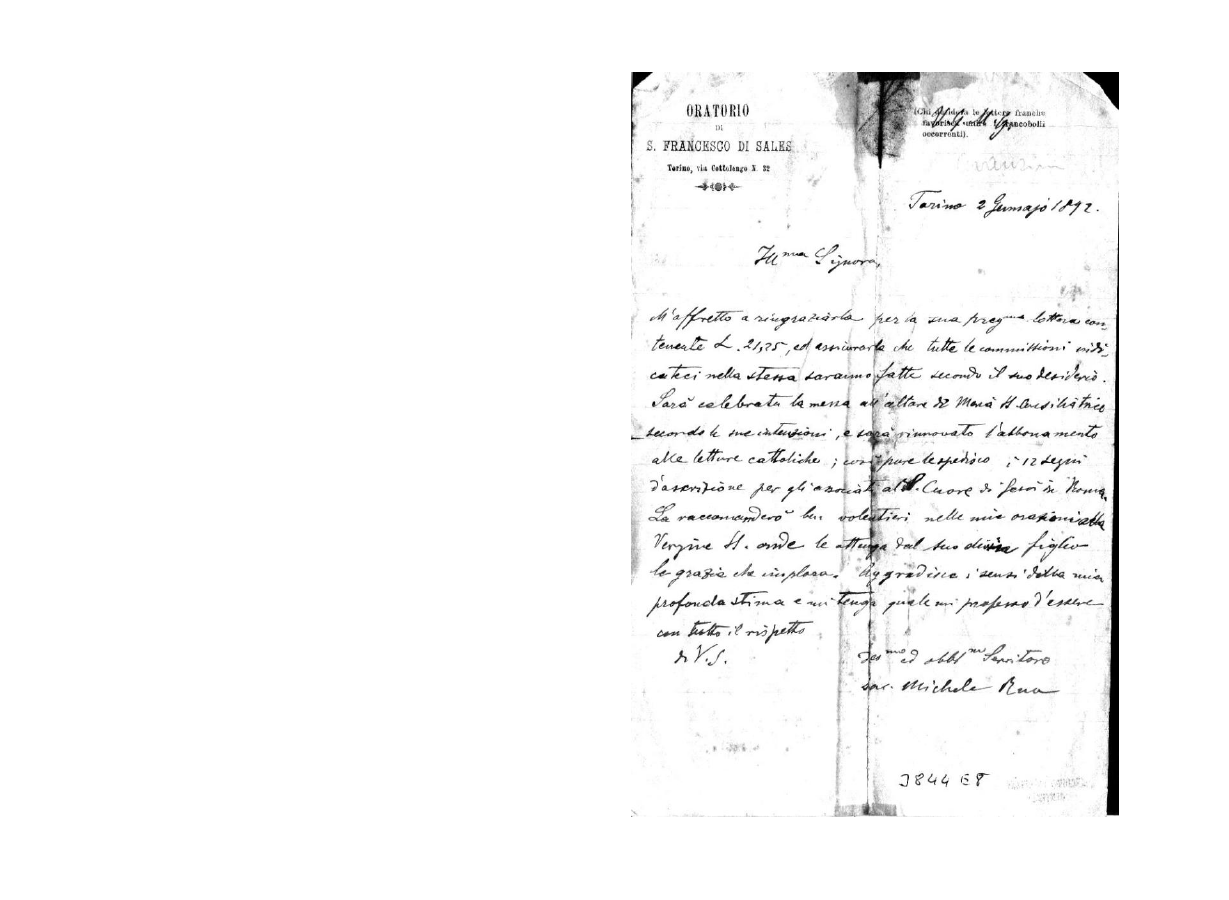 ORATORIO
DI
S. FRANCESCO DI SALES
Torino, via Cottolengo N. 32
(Chi desidera le lettere franche
favorisca unire i francobolli
occorrenti).
Torino 2 Gennajo 1892.
Ill.ma Signora,
M'affretto a ringraziarla per la sua preg.ma lettera con-
tenente L. 21,25, ed assicurarla che tutte le commissioni indi-
cateci nella stessa saranno fatte secondo il suo desiderio.
Sarà celebrata la messa all'altare di Maria SS. Ausiliatrice
secondo le sue intenzioni, e sarà rinnovato l'abbonamento
alle letture cattoliche; così pure le spedisco i 12 segni
d'ascrizione per gli associati al S. Cuore di Gesù in Roma.
La raccomanderò ben volentieri nelle mie orazioni alla
Vergine SS. onde le ottenga dal suo divin figlio
le grazie che implora. Aggradisca i sensi della mia
profonda stima e mi tenga quale mi professo d'essere
con tutto il rispetto
di V. S.
dev.mo ed obbl.mo Servitore
sac. Michele Rua
3844 E8